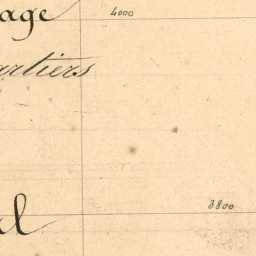 age
4000
artiers
3800
al